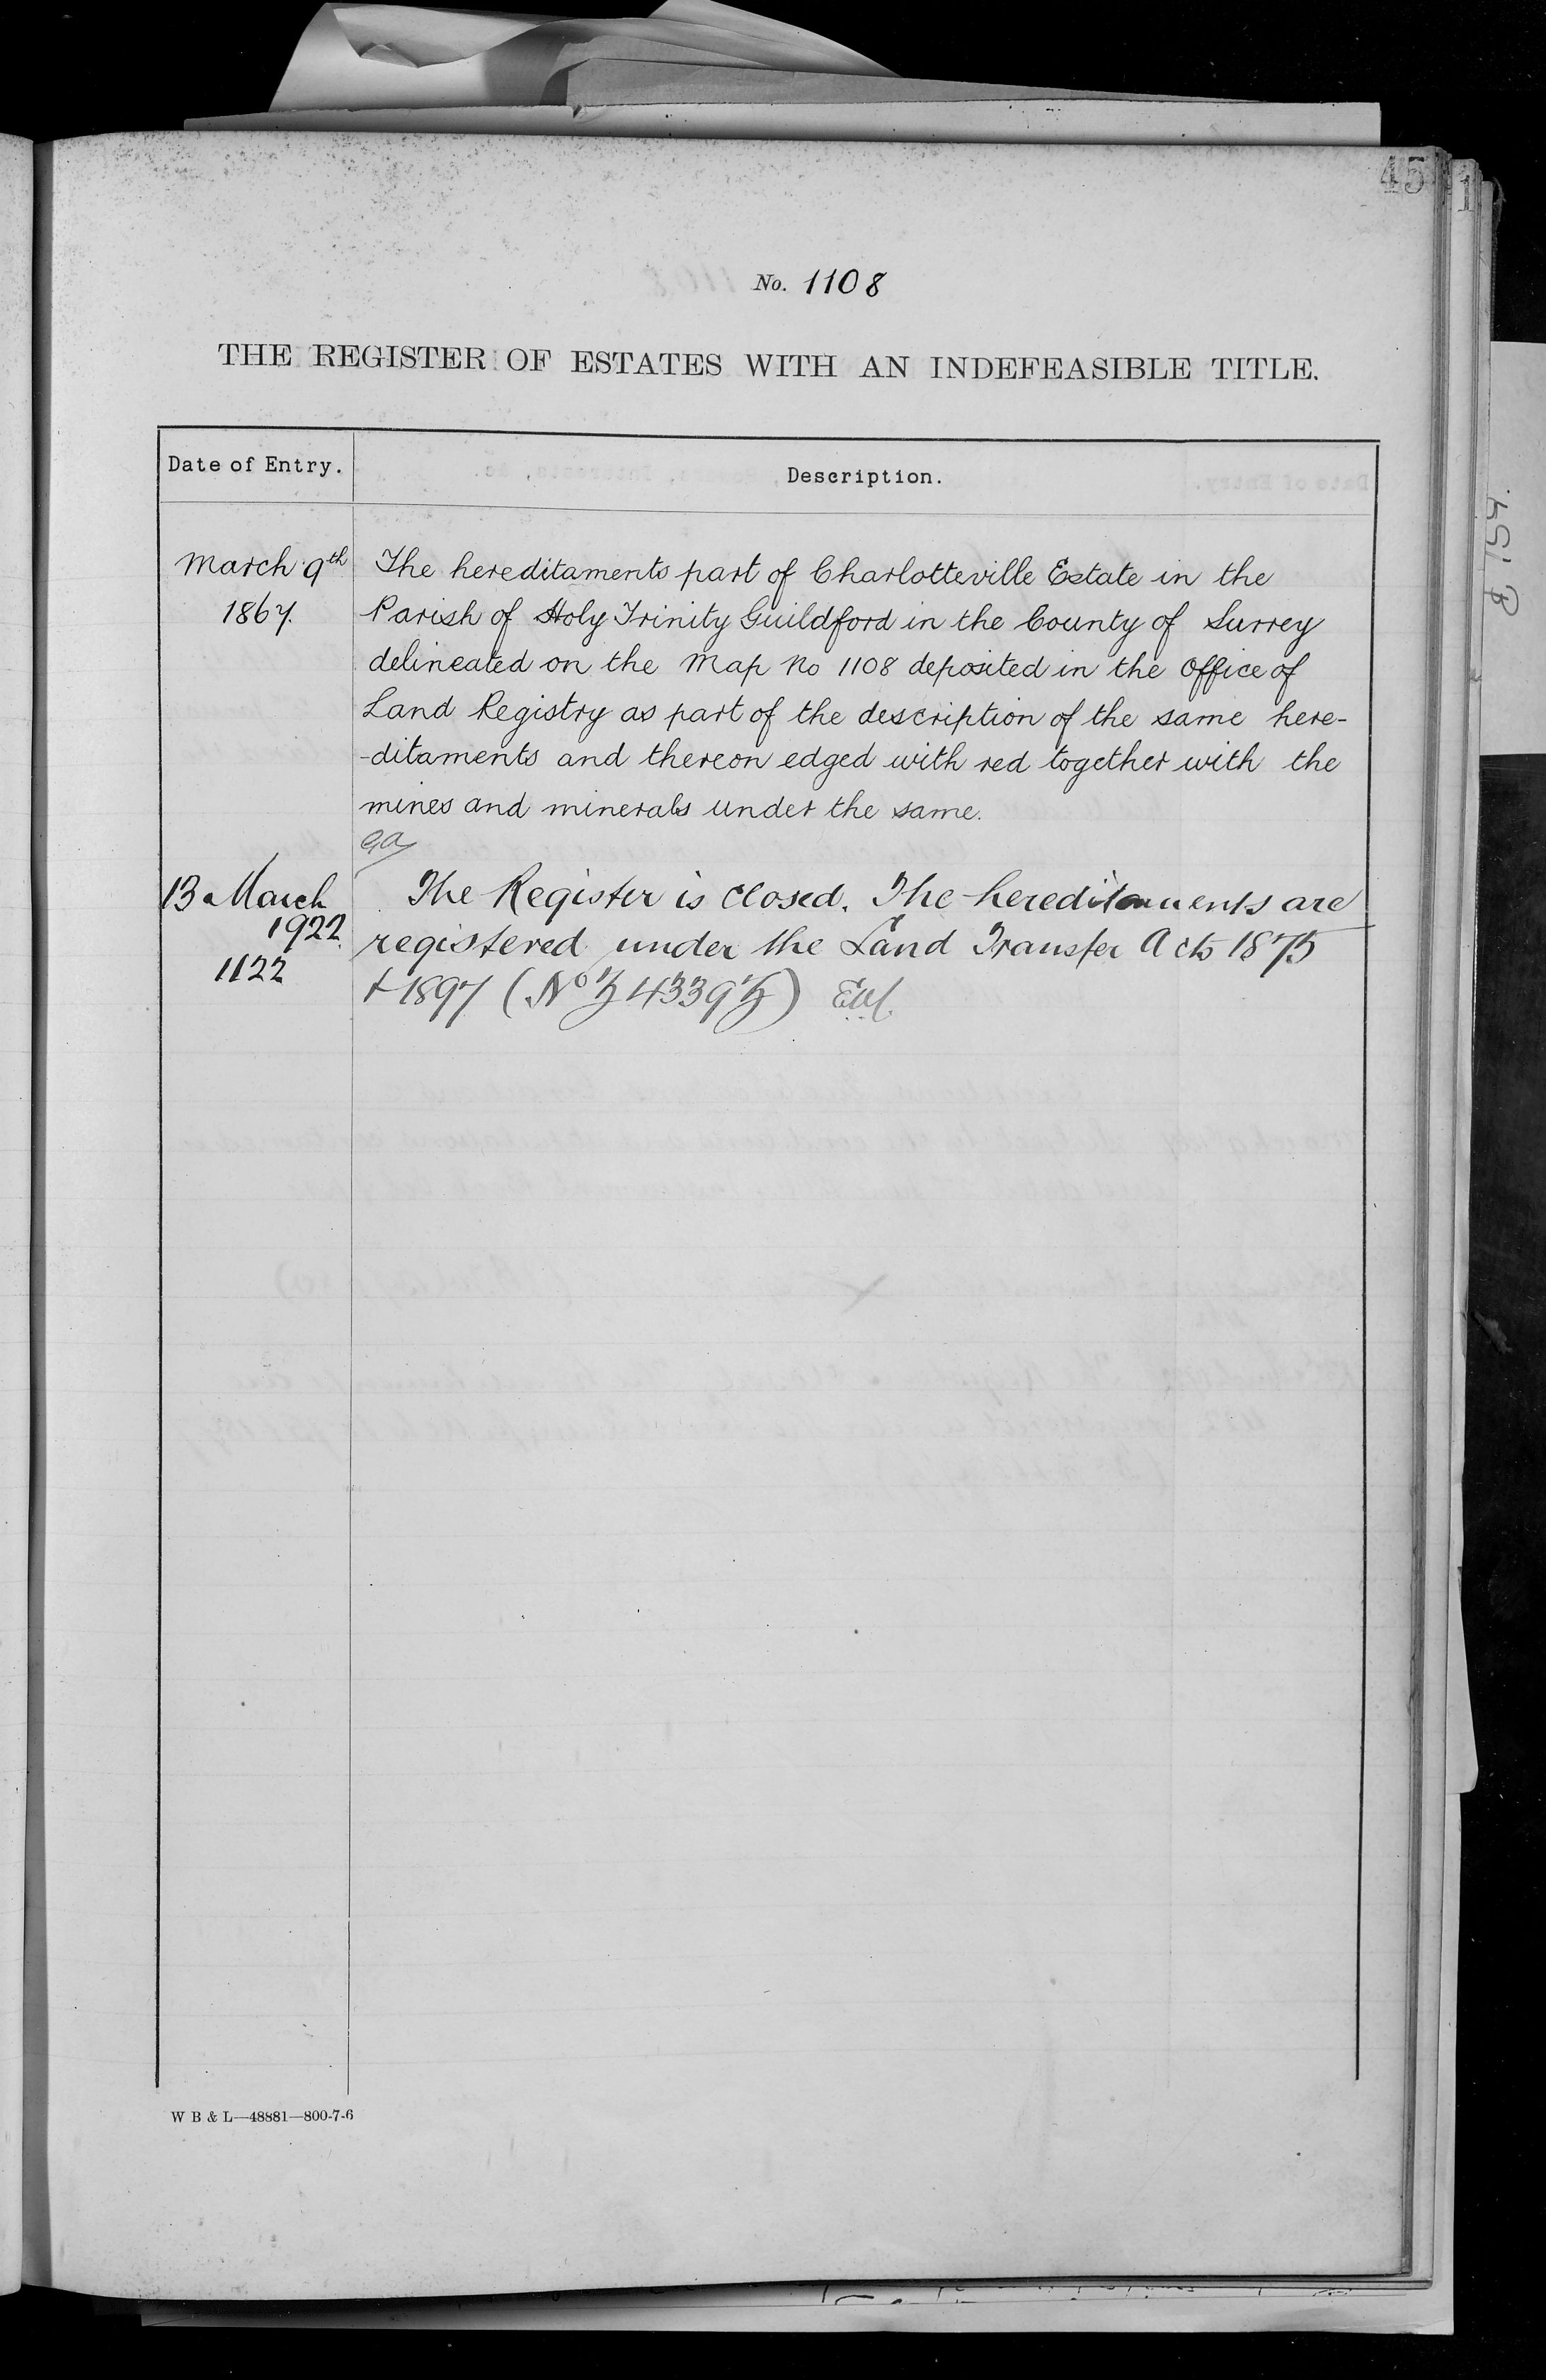 45
1
No. 1108
THE REGISTER OF ESTATES WITH AN INDEFEASIBLE TITLE.
Date of Entry.
Description.
March 9th
1867.
The hereditaments part of Charlotteville Estate in the
Parish of Holy Trinity Guildford in the County of Surrey
delineated on the Map No 1108 deposited in the Office of
Land Registry as part of the description of the same here-
-ditaments and thereon edged with red together with the
mines and minerals under the same.
13 March
1922.
1122
The Register is closed. The hereditaments are
registered under the Land Transfer Acts 1875
+ 1897 (No
W B & L—48881—800-7-6